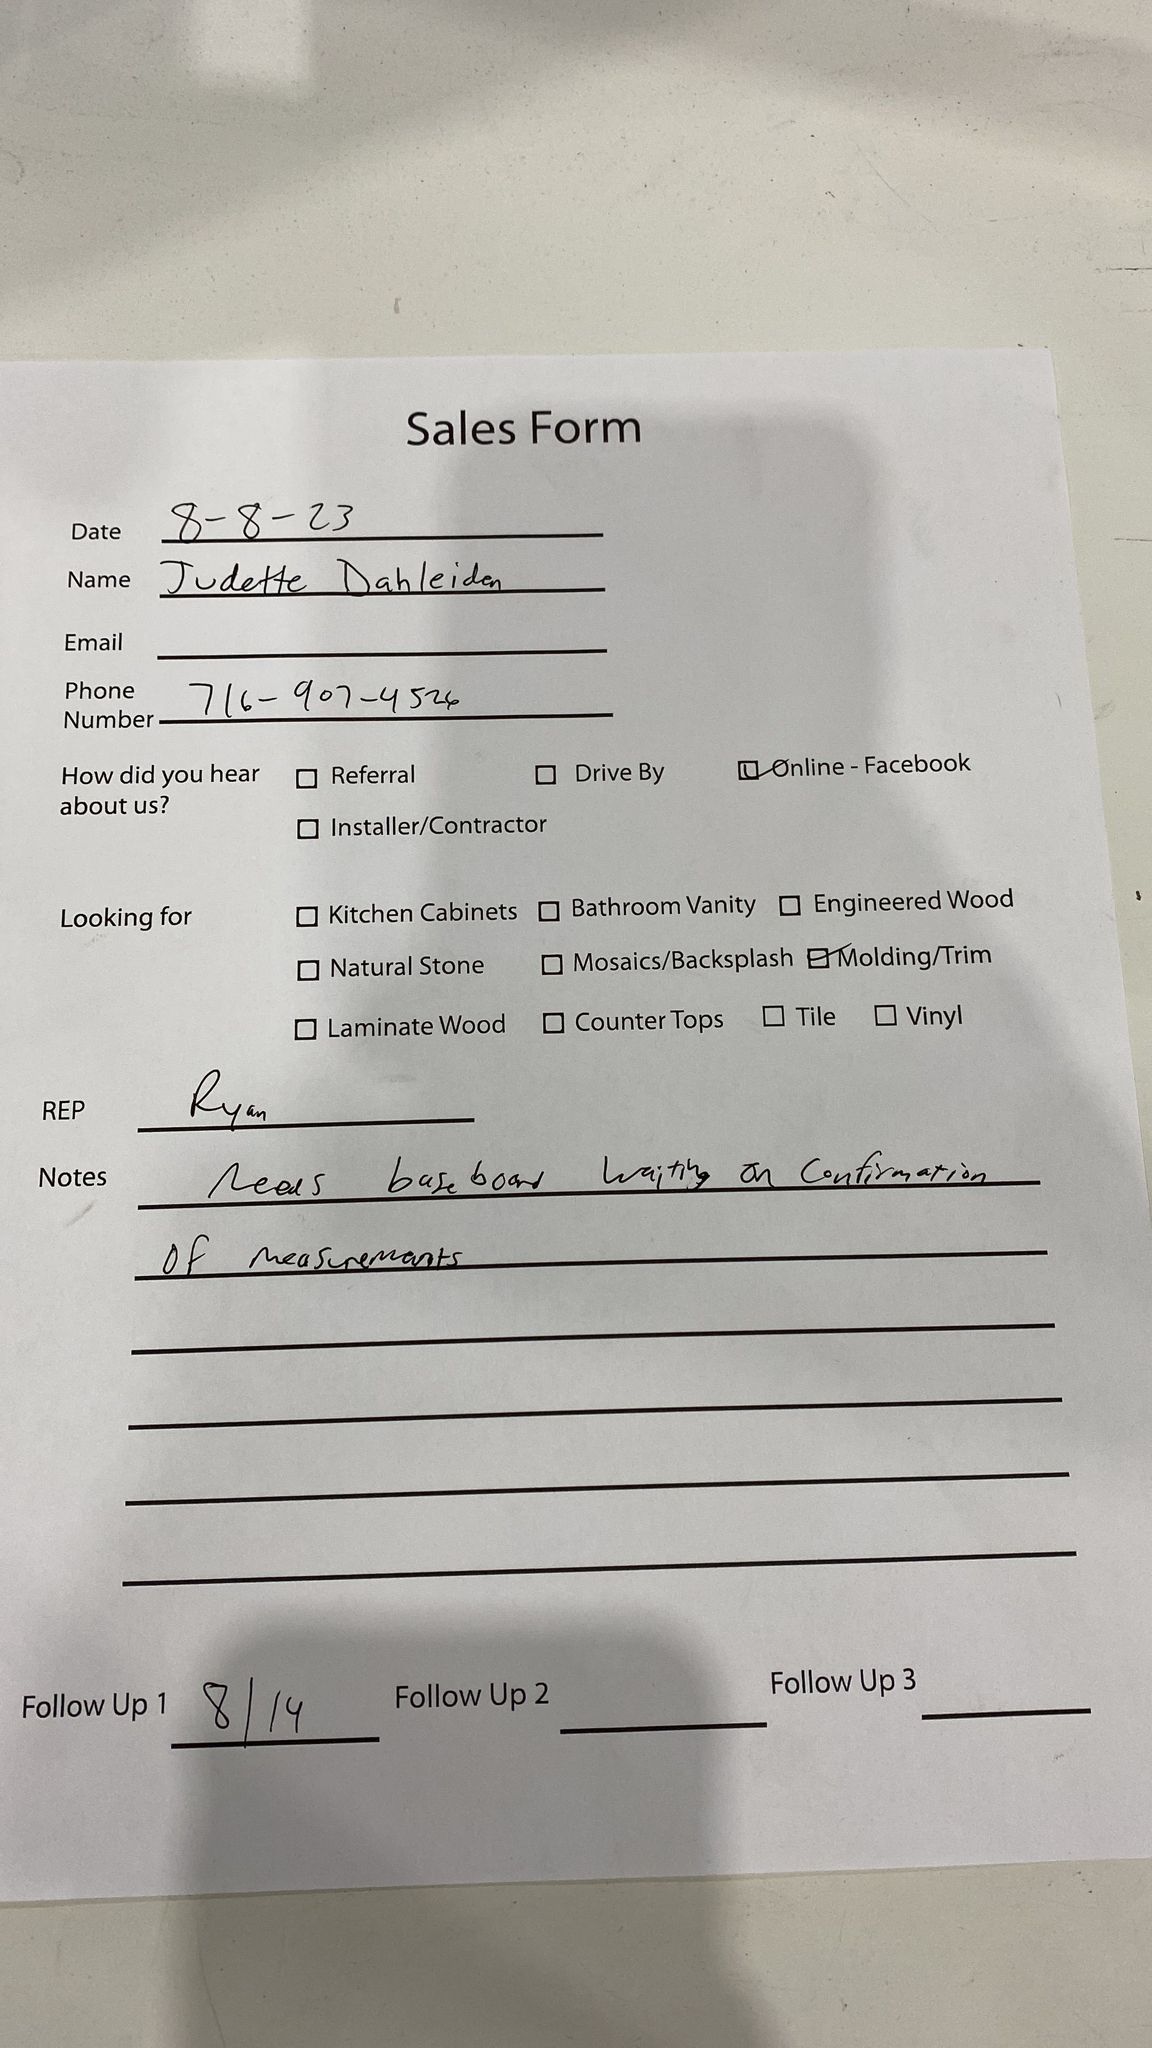 Sales Form
Date 8-8-23
Name Judette Dahleiden
Email
Phone
Number 716-907-4526
How did you hear ☐ Referral ☐ Drive By ☑ Online - Facebook
about us? ☐ Installer/Contractor
Looking for ☐ Kitchen Cabinets ☐ Bathroom Vanity ☐ Engineered Wood
☐ Natural Stone ☐ Mosaics/Backsplash ☑ Molding/Trim
☐ Laminate Wood ☐ Counter Tops ☐ Tile ☐ Vinyl
REP Ryan
Notes Needs baseboard waiting on confirmation
of measurements
Follow Up 1 8/14 Follow Up 2 Follow Up 3